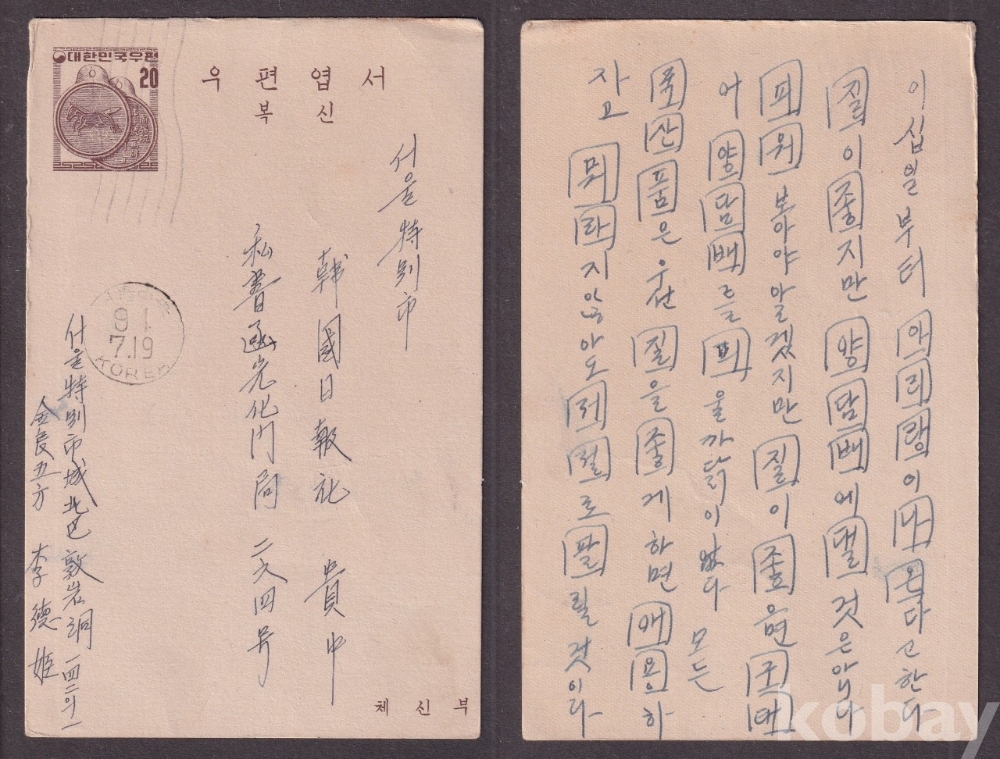 대한민국우편
20
우편엽서
복신
서울特別市
韓國日報社 貴中
私書函光化門局 二六四号
서울特別市城北区敦岩洞
李德姬
91
7.19
KOREA
체신부
이십일부터 아리랑이 나온다고 한다
질이 좋지만 양담배에 댈 것은 아니다
피워 보아야 알겠지만 질이 좋으면 구태
어 양담배를 피울까닭이 없다 모든
국산품은 우선 질을 좋게 하면 애용하
자고 뭐라지 않아도 저절로 팔릴것이다
kobay